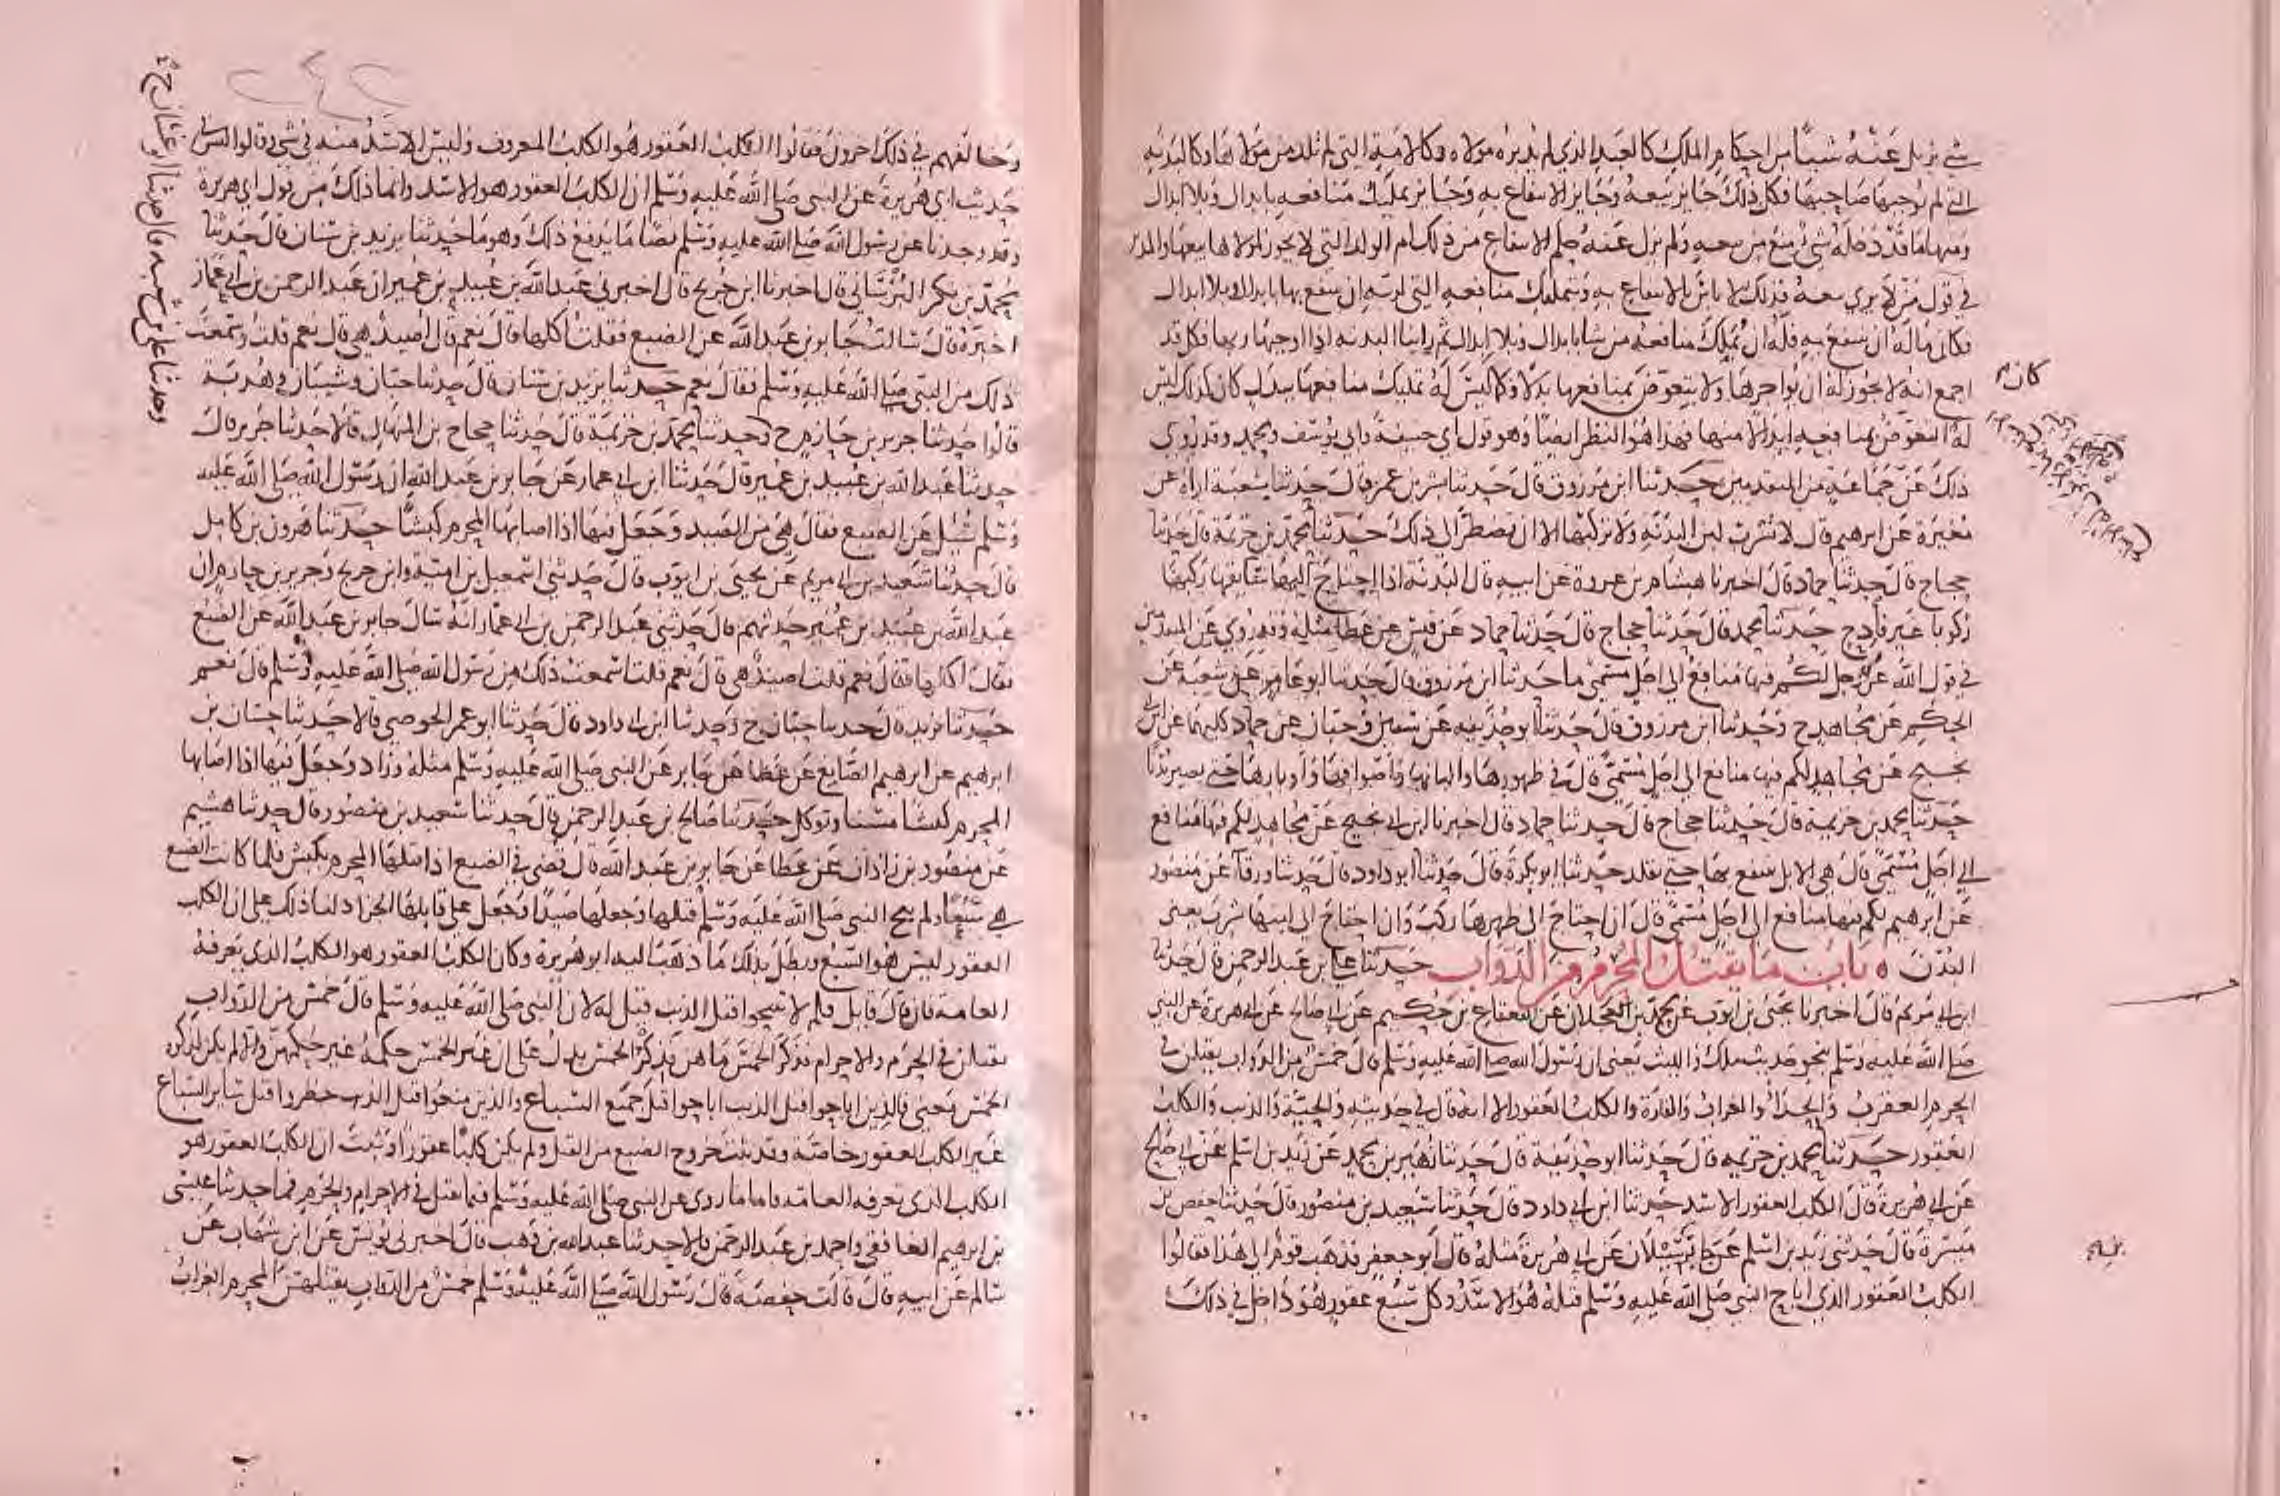 شي يزيل عنه شيئا من احكام الملك كالعبد الذي لم يدبره مولاه وكالامة التي لم تلد من مولاها وكالبدنة
التي لم يوجبها صاحبها فكل ذلك جايز بيعه وجايز الانتفاع به وجايز تمليك منافعه بابدال وبلا ابدال
ومنها ما قد دخله شي منع من بيعه ولم يزل عنه حكم الانتفاع من ذلك ام الولد التي لا يجوز لمولاها بيعها والمدبر
في قول من لا يري بيعه فذلك لا باس بالانتفاع به وبتمليك منافعه التي لربه ان ينتفع بها بابدال وبلا ابدال
فكان ماله ان ينتفع به فله ان يملك منافعه من شا بابدال وبلا ابدال ثم راينا البدنة اذا اوجبها ربها فكل قد
اجمع انه لا يجوز له ان يواجرها ولا يتعوض بمنافعها بدلا وكما ليس له تمليك منافعها ببدل كان كذلك ليس
له التعوض بمنافعه ابدالا منها فهذا هو النظر ايضا وهو قول ابي حنيفة وابي يوسف ومحمد وقد روي
ذلك عن جماعة من المتقدمين حدثنا ابن مرزوق قال حدثنا بشر بن عمر قال حدثنا شعبة اراه عن
مغيرة عن ابرهيم قال لا تشرب لبن البدنة ولا تركبها الا ان تضطر الى ذلك حدثنا محمد بن خزيمة قال حدثنا
حجاج قال حدثنا حماد قال اخبرنا هشام بن عروة عن ابيه قال البدنة اذا احتاج اليها سايقها ركبها
ركوبا غير فادح حدثنا محمد قال حدثنا حجاج قال حدثنا حماد عن قيس عن عطا مثله وقد روي عن المتقدمين
في قول الله عز وجل لكم فيها منافع الى اجل مسمى ما حدثنا ابن مرزوق قال حدثنا ابو عامر عن شعبة عن
الحكم عن مجاهد ح وحدثنا ابن مرزوق قال حدثنا ابو حذيفة عن سفين وحبان عن حماد كليهما عن ابن ابي
نجيح عن مجاهد لكم فيها منافع الى اجل مسمى قال في ظهورها والبانها واصوافها واوبارها حتى يصير بدنا
حدثنا محمد بن خزيمة قال حدثنا حجاج قال حدثنا حماد قال اخبرنا ابن ابي نجيح عن مجاهد لكم فيها منافع
الي اجل مسمى قال هي الابل ينتفع بها حتى تقلد حدثنا ابو بكرة قال حدثنا ابو داود قال حدثنا ورقا عن منصور
عن ابرهيم لكم فيها منافع الى اجل مسمى قال ان احتاج الى ظهرها ركب وان احتاج الى لبنها شرب يعني
البدن ه باب ما يقتل المحرم من الدواب حدثنا علي بن عبد الرحمن قال حدثنا
ابن ابي مريم قال اخبرنا يحيى بن ايوب عن محمد بن العجلان عن القعقاع بن حكيم عن ابي صالح عن ابي هريرة عن النبي
صلى الله عليه وسلم نحو حديث ملك والليث يعني ان رسول الله صلى الله عليه وسلم قال خمس من الدواب يقتلن في
الحرم العقرب والحدا والغراب والفارة والكلب العقور الا انه قال في حديثه والحية والذيب والكلب
العقور حدثنا محمد بن خزيمة قال حدثنا ابو حذيفة قال حدثنا زهير بن محمد عن زيد بن اسلم عن ابي صالح
عن ابي هريرة قال الكلب العقور الاسد حدثنا ابن ابي داود قال حدثنا سعيد بن منصور قال حدثنا حفص بن
ميسرة قال حدثني زيد بن اسلم عن ابن سيلان عن ابي هريرة مثله قال ابو جعفر فذهب قوم الى هذا فقالوا
الكلب العقور الذي اباح النبي صلى الله عليه وسلم قتله هو الاسد وكل سبع عقور فهو داخل في ذلك
كان
٢٤٢
وخالفهم في ذلك اخرون فقالوا الكلب العقور هو الكلب المعروف وليس الاسد منه في شي وقالوا ليس في
حديث ابي هريرة عن النبي صلى الله عليه وسلم ان الكلب العقور هو الاسد وانما ذلك من قول ابي هريرة
وقد وجدنا عن رسول الله صلى الله عليه وسلم نصا ما يدفع ذلك وهو ما حدثنا يزيد بن سنان قال حدثنا
محمد بن بكر البرساني قال اخبرنا ابن جريج قال اخبرني عبد الله بن عبيد بن عمير ان عبد الرحمن بن ابي عمار
اخبره قال سالت جابر بن عبد الله عن الضبع فقلت اكلها قال نعم قال اصيد هي قال نعم قلت وسمعت
ذلك من النبي صلى الله عليه وسلم فقال نعم حدثنا يزيد بن سنان قال حدثنا حبان وشيبان وهدبة
قالوا حدثنا جرير بن حازم ح وحدثنا محمد بن خزيمة قال حدثنا حجاج بن المنهال قالا حدثنا جرير قال
حدثنا عبد الله بن عبيد بن عمير قال حدثنا ابن ابي عمار عن جابر بن عبد الله ان رسول الله صلى الله عليه
وسلم سئل عن الضبع فقال هي من الصيد وجعل فيها اذا اصابها المحرم كبشا حدثنا هرون بن كامل
قال حدثنا سعيد بن ابي مريم عن يحيى بن ايوب قال حدثني اسمعيل بن امية وابن جريج وجرير بن حازم ان
عبد الله بن عبيد بن عمير حدثهم قال حدثني عبد الرحمن بن ابي عمار انه سال جابر بن عبد الله عن الضبع
فقال اكلها فقال نعم قلت اصيد هي قال نعم قلت سمعت ذلك من رسول الله صلى الله عليه وسلم قال نعم
حدثنا يزيد قال حدثنا حبان ح وحدثنا ابن ابي داود قال حدثنا ابو عمر الحوضي قالا حدثنا حسان بن
ابرهيم عن ابرهيم الصايغ عن عطا عن جابر عن النبي صلى الله عليه وسلم مثله وزاد وجعل فيها اذا اصابها
المحرم كبشا مسنا وتوكل حدثنا صالح بن عبد الرحمن قال حدثنا سعيد بن منصور قال حدثنا هشيم
عن منصور بن زاذان عن عطا عن جابر بن عبد الله قال قضى في الضبع اذا قتلها المحرم بكبش فلما كانت الضبع
هي سبعا ولم يبح النبي صلى الله عليه وسلم قتلها وجعلها صيدا وجعل على قاتلها الجزا دلنا ذلك على ان الكلب
العقور ليس هو السبع وبطل بذلك ما ذهب اليه ابو هريرة وكان الكلب العقور هو الكلب الذي تعرفه
العامة فان قال قايل فلم لا تبيحوا قتل الذيب قيل له لان النبي صلى الله عليه وسلم قال خمس من الدواب
يقتلن في الحرم والاحرام فذكر الخمس ما هن فذكر الخمس يدل على ان غير الخمس حكمه غير حكمهن والا لم يكن لذكره
الخمس معنى فالذين اباحوا قتل الذيب اباحوا قتل جميع السباع والذين منعوا قتل الذيب حظروا قتل ساير السباع
غير الكلب العقور خاصة وقد ثبت خروج الضبع من القتل ولم يكن كلبا عقورا وثبت ان الكلب العقور هو
الكلب الذي تعرفه العامة فاما ما روي عن النبي صلى الله عليه وسلم فيما يقتل في الاحرام والحرم فما حدثنا عيسى
بن ابرهيم الغافقي واحمد بن عبد الرحمن قالا حدثنا عبد الله بن وهب قال اخبرني يونس عن ابن شهاب عن
سالم عن ابيه قال قالت حفصة قال رسول الله صلى الله عليه وسلم خمس من الدواب يقتلهن المحرم الغراب